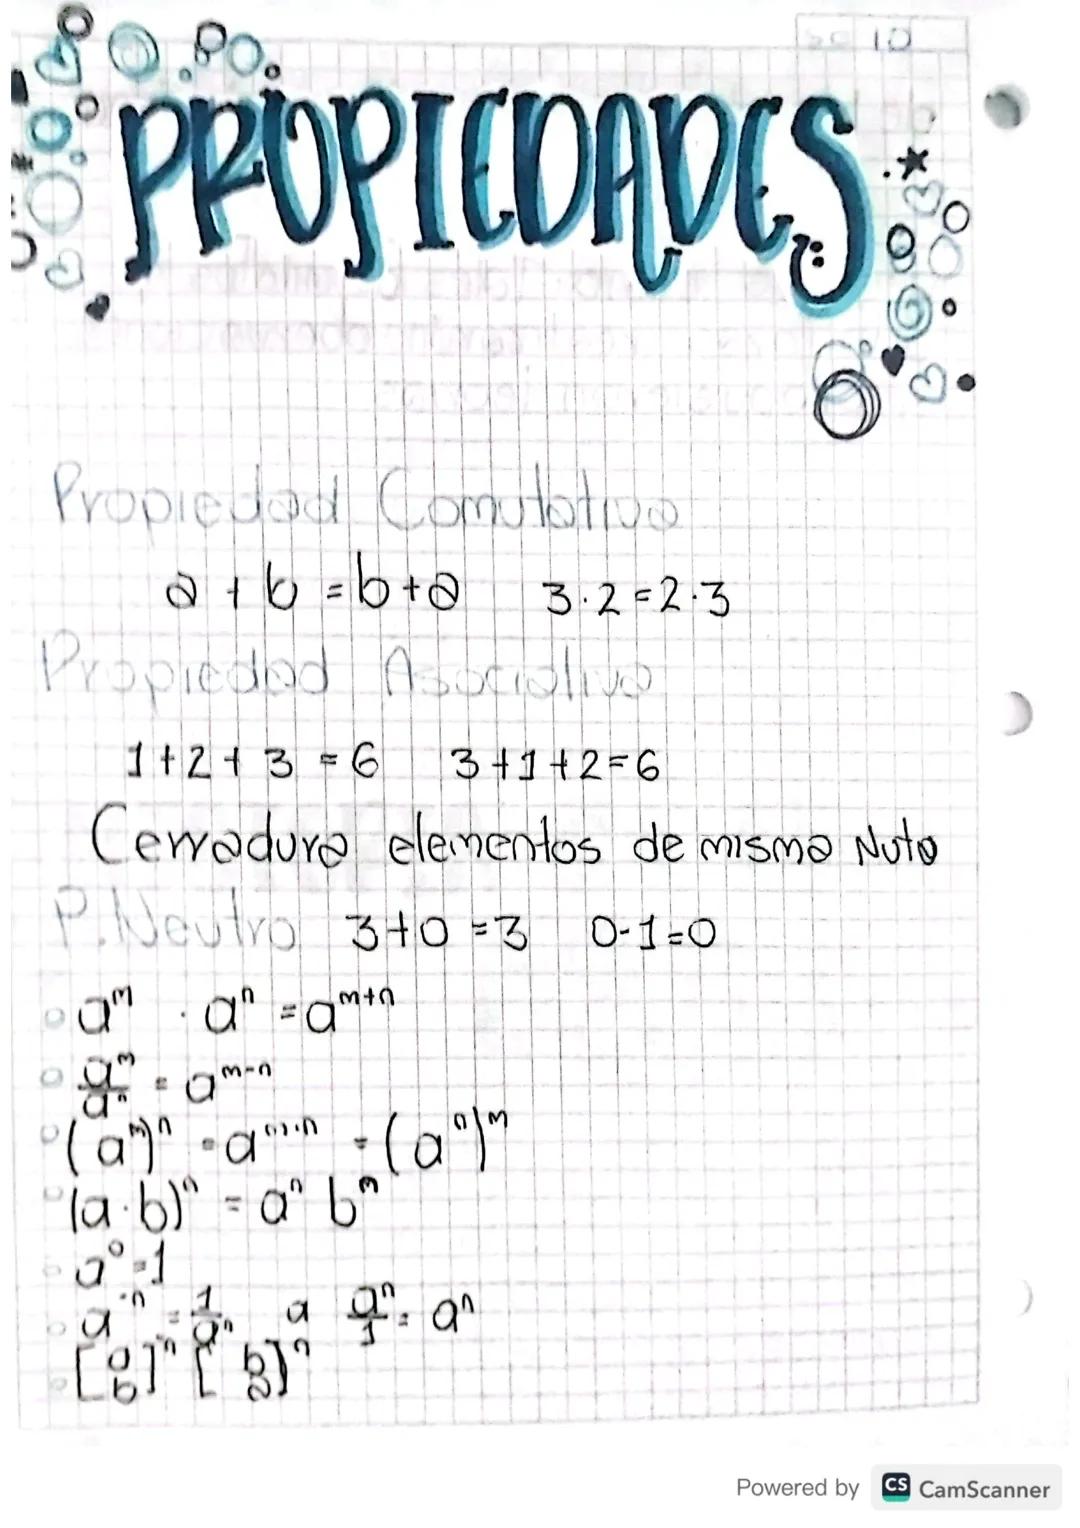 10
PROPIEDADES
Propiedad Comutativa
a + b = b + a 3·2=2·3
Propiedad Asociativa
1+2+3=6 3+1+2=6
Cerradura elementos de misma Nuto
P. Neutro 3+0=3 0·1=0
a^m · a^n = a^(m+n)
a^m/a^n = a^(m-n)
(a^m)^n = a^(m·n) = (a^n)^m
(a·b)^n = a^n b^n
a^0=1
a^-n = 1/a^n a a^n/1 = a^n
[a/b]^-n [b/a]^n
Powered by CS CamScanner